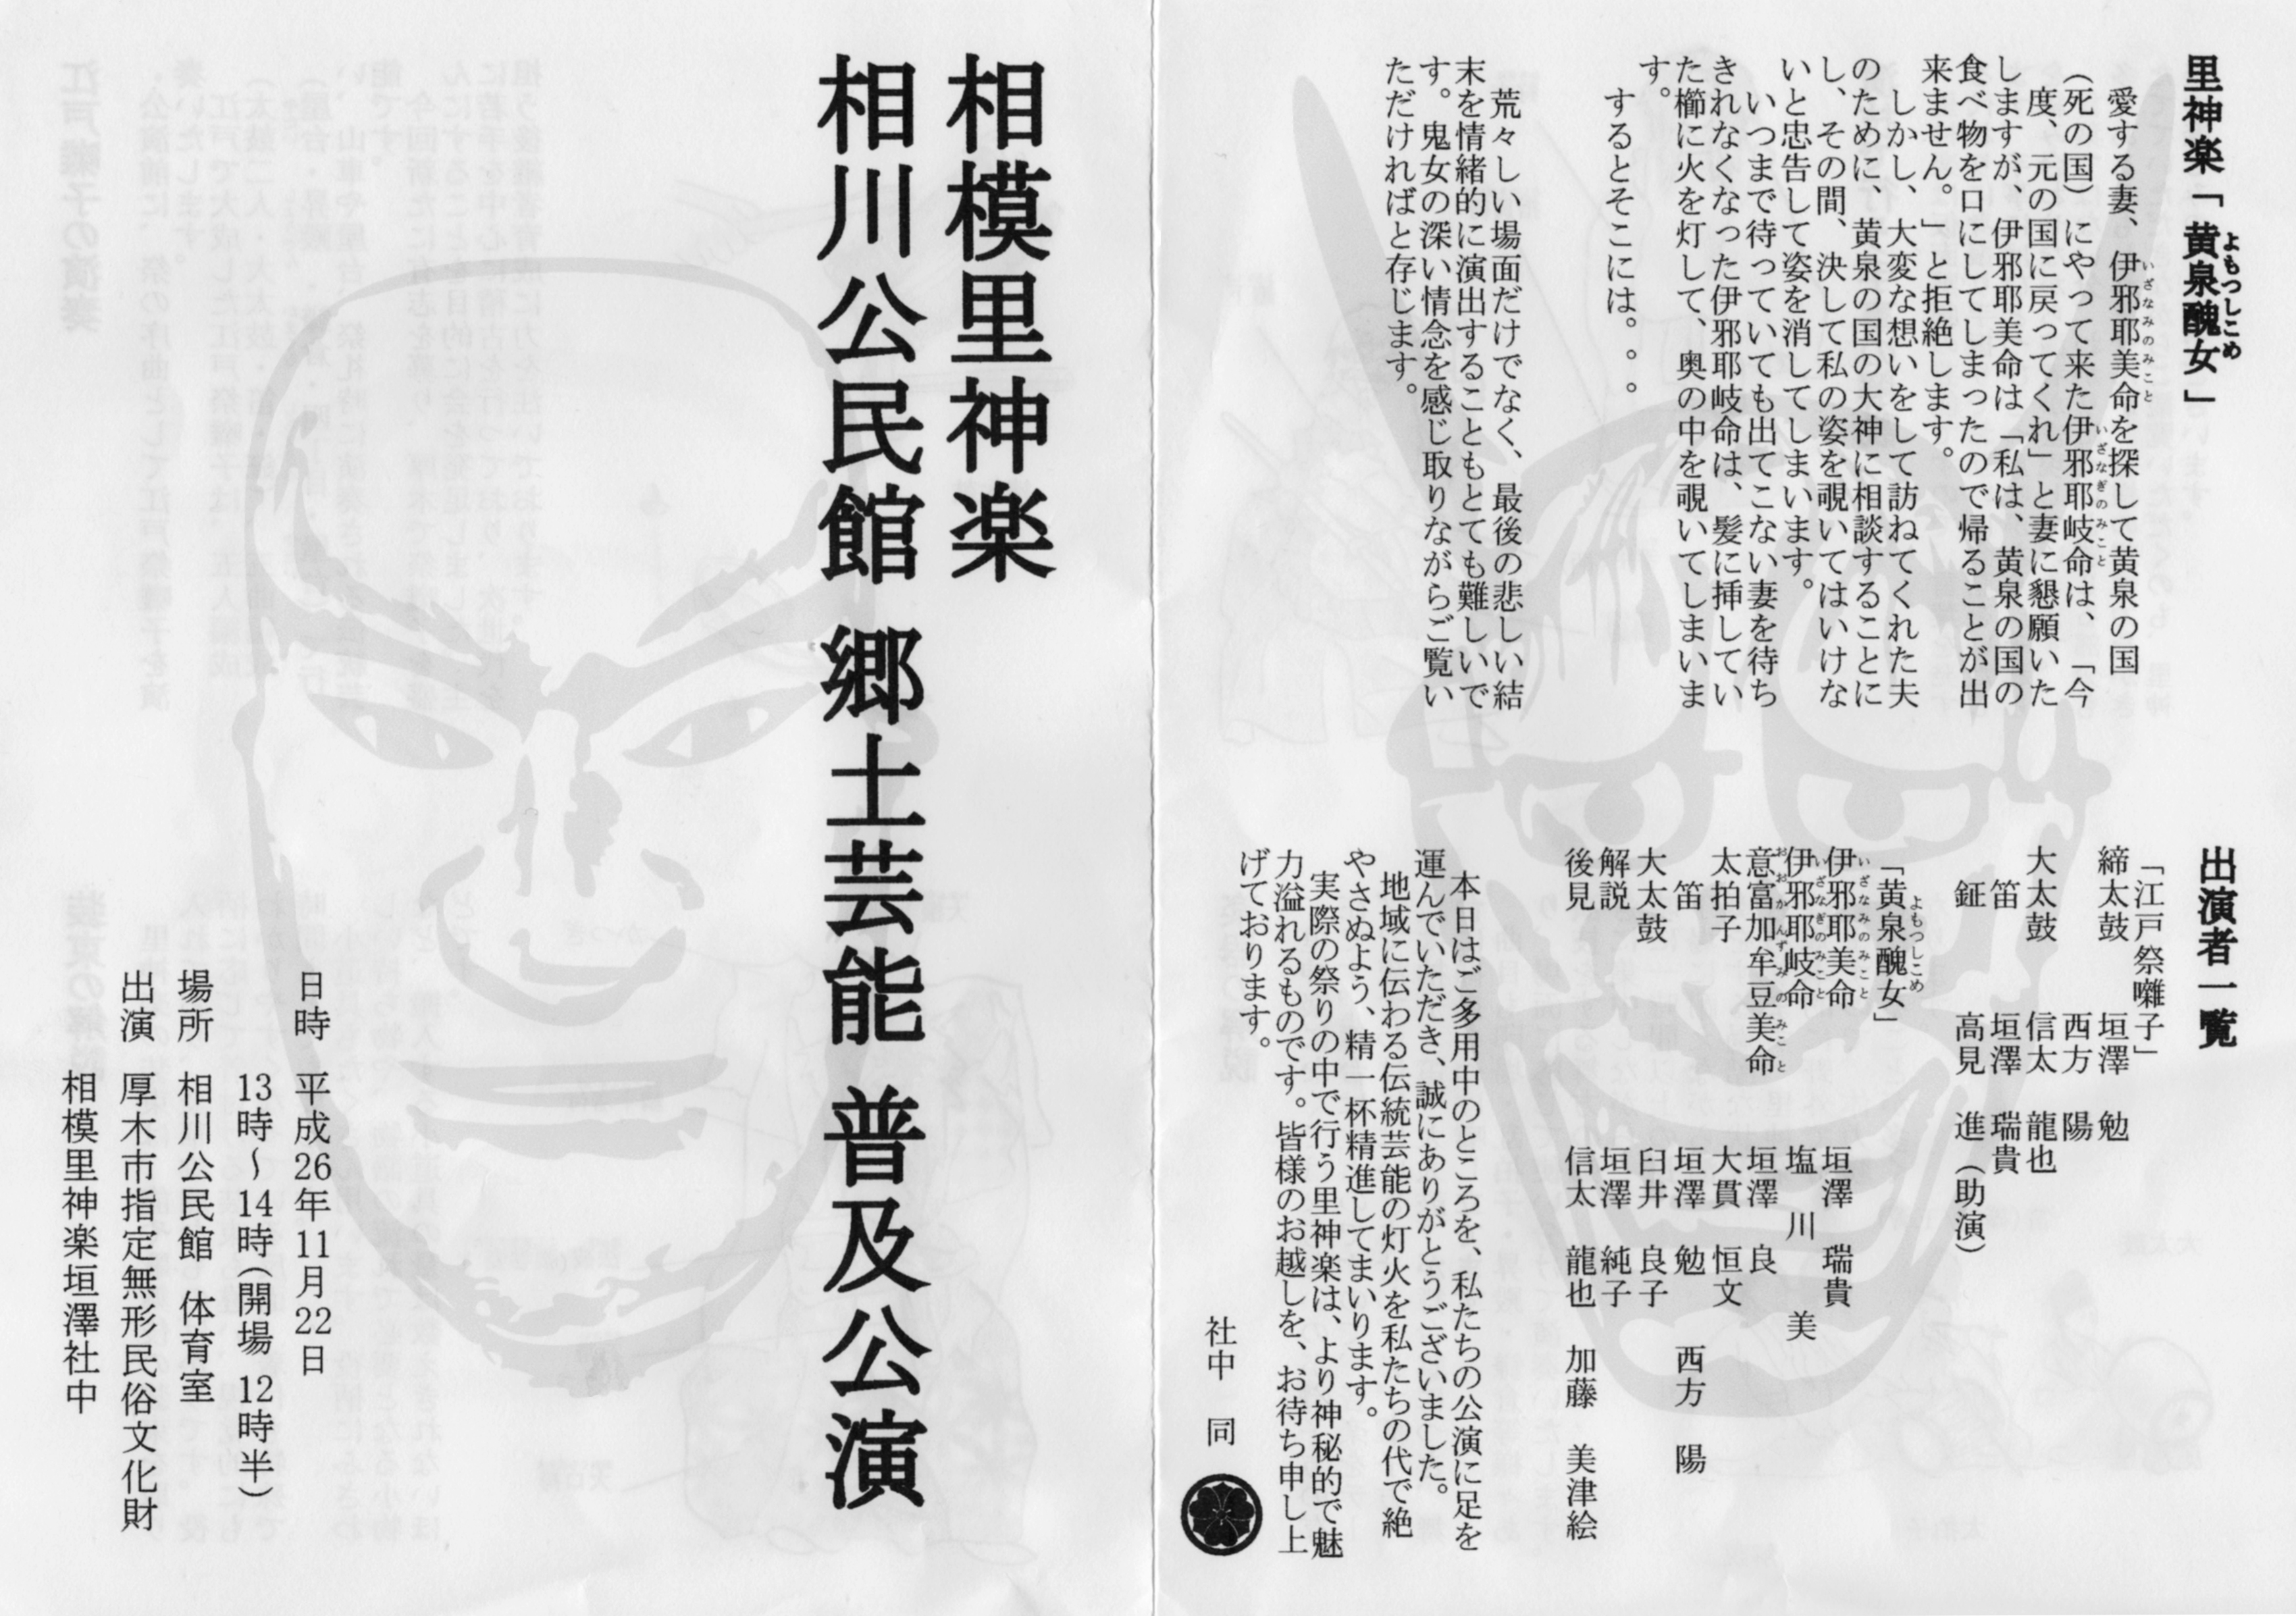 里神楽「黄泉醜女」
よもつしこめ
愛する妻、伊邪耶美命を探して黄泉の国
いざなみのみこと
(死の国)にやって来た伊邪耶岐命は、「今
いざなぎのみこと
度、元の国に戻ってくれ」と妻に懇願いた
しますが、伊邪耶美命は「私は、黄泉の国の
食べ物を口にしてしまったので帰ることが出
来ません。」と拒絶します。
しかし、大変な想いをして訪ねてくれた夫
のために、黄泉の国の大神に相談することに
し、その間、決して私の姿を覗いてはいけな
いと忠告して姿を消してしまいます。
いつまで待っていても出てこない妻を待ち
きれなくなった伊邪耶岐命は、髪に挿してい
た櫛に火を灯して、奥の中を覗いてしまいま
す。
するとそこには。。。
荒々しい場面だけでなく、最後の悲しい結
末を情緒的に演出することもとても難しいで
す。鬼女の深い情念を感じ取りながらご覧い
ただければと存じます。
出演者一覧
「江戸祭囃子」
締太鼓 垣澤 勉
西方 陽
大太鼓 信太 龍也
笛 垣澤 瑞貴
鉦 高見 進(助演)
「黄泉醜女」
よもつしこめ
伊邪耶美命 垣澤 瑞貴
いざなみのみこと
伊邪耶岐命 塩川 美
いざなぎのみこと
意富加牟豆美命 垣澤 良
おおかんずみのみこと
太拍子 大貫 恒文
笛 垣澤 勉 西方 陽
大太鼓 臼井 良子
解説 垣澤 純子
後見 信太 龍也 加藤 美津絵
本日はご多用中のところを、私たちの公演に足を
運んでいただき、誠にありがとうございました。
地域に伝わる伝統芸能の灯火を私たちの代で絶
やさぬよう、精一杯精進してまいります。
実際の祭りの中で行う里神楽は、より神秘的で魅
力溢れるものです。皆様のお越しを、お待ち申し上
げております。
社中 同
相模里神楽
相川公民館 郷土芸能 普及公演
日時 平成26年11月22日
13時〜14時(開場 12時半)
場所 相川公民館 体育室
出演 厚木市指定無形民俗文化財
相模里神楽垣澤社中